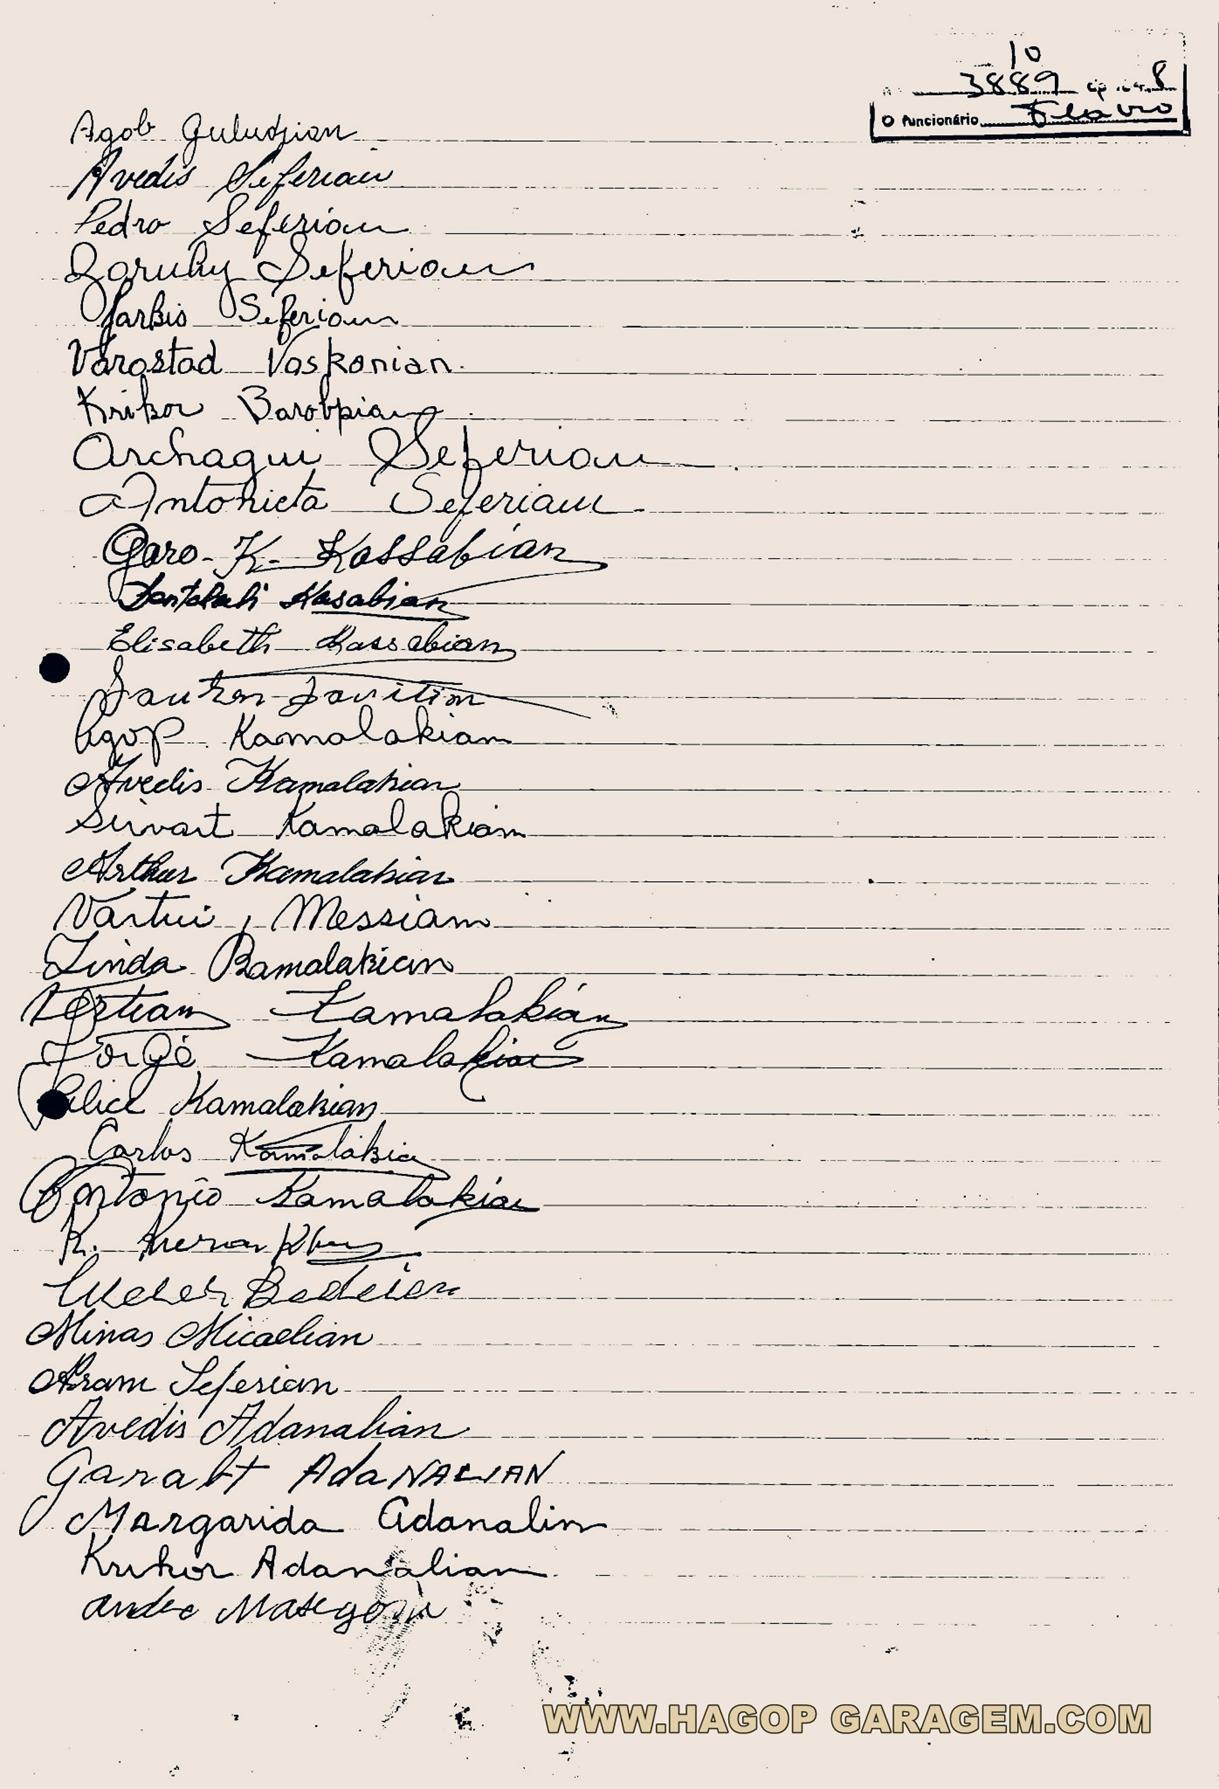 10
3889 8
O funcionário Flavio
Agob Guludjian
Avedis Seferian
Pedro Seferian
Zaruhy Seferian
Sarkis Seferian
Varastad Voskanian.
Krikor
Archagui Seferian
Antonieta Seferian
Garo K. Kassabian
Kasabian
Elisabeth Kassabian
Agop Kamalakian
Avedis Kamalakian
Sirvart Kamalakian
Arthur Kamalakian
Vartui Messiam
Linda Kamalakian
Kamalakian
Jorge Kamalakian
Alice Kamalakian
Carlos Kamalakia
Antonio Kamalakian
K.
Minas Micaelian
Aram Seferian
Avedis Adanalian
Garabt AdaNALIAN
Margarida Adanalin
Krikor Adanalian
WWW.HAGOP GARAGEM.COM